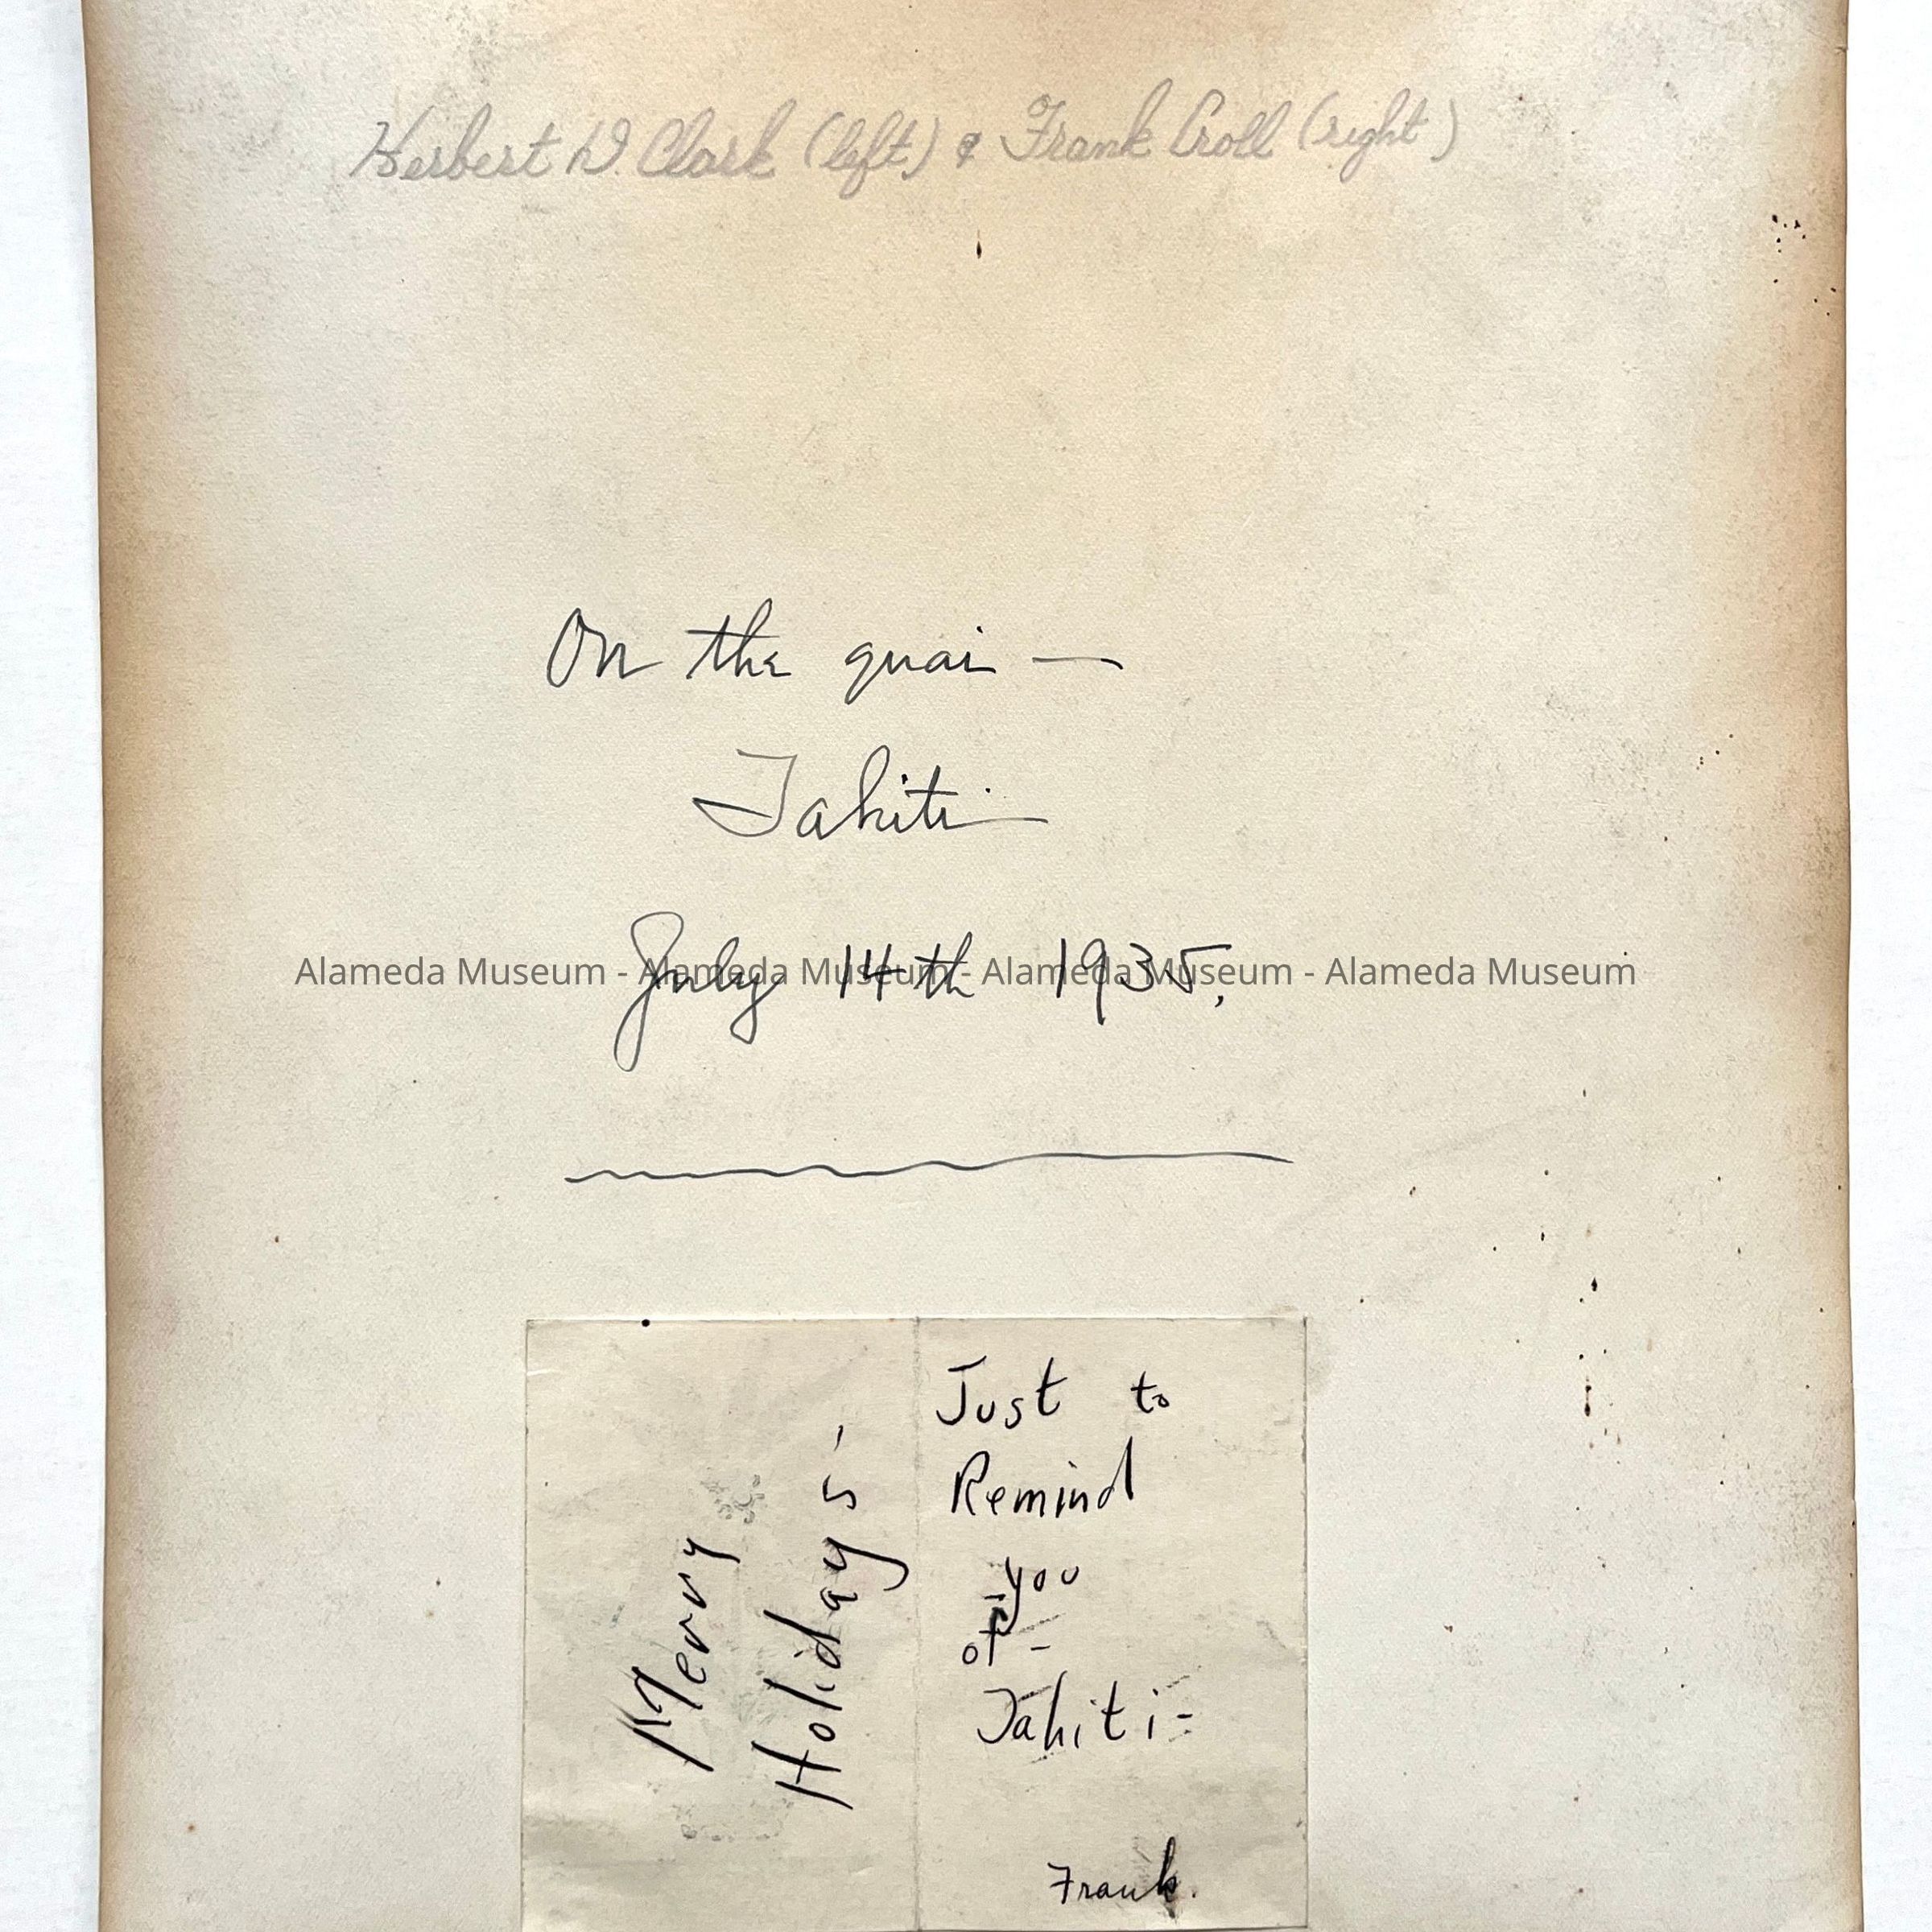 Herbert D. Clark (left) & Frank Croll (right)
On the quai —
Tahiti
July 14th 1935.
Alameda Museum - Alameda Museum - Alameda Museum - Alameda Museum
Merry
Holidays -
Just to
Remind
you
of -
Tahiti -
Frank.